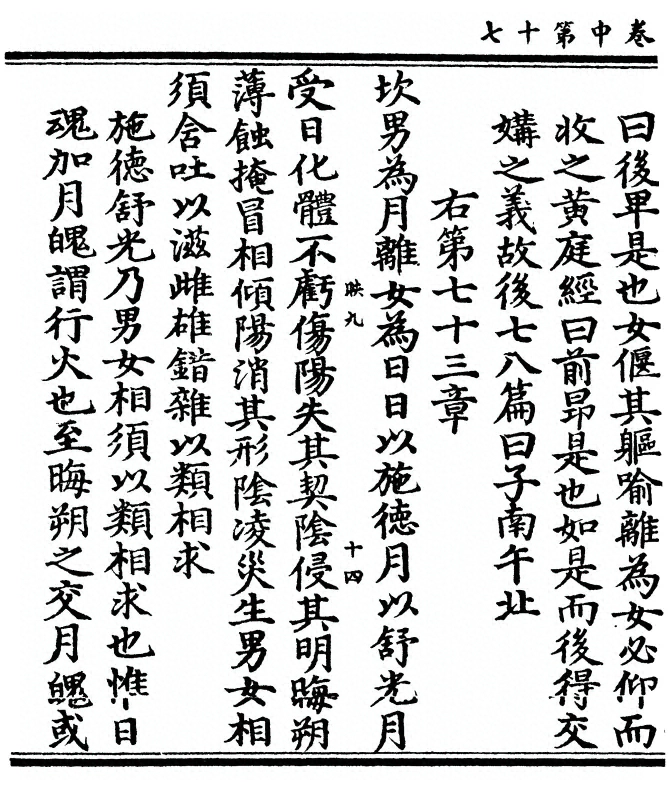 卷中第十七
曰後畢是也女偃其軀喻離為女必仰而
收之黃庭經曰前昴是也如是而後得交
媾之義故後七八篇曰子南午北
右第七十三章
坎男為月離女為日日以施德月以舒光月
映九
十四
受日化體不虧傷陽失其契陰侵其明晦朔
薄蝕掩冒相傾陽消其形陰凌災生男女相
須含吐以滋雌雄錯雜以類相求
施德舒光乃男女相須以類相求也惟日
魂加月魄謂行火也至晦朔之交月魄或